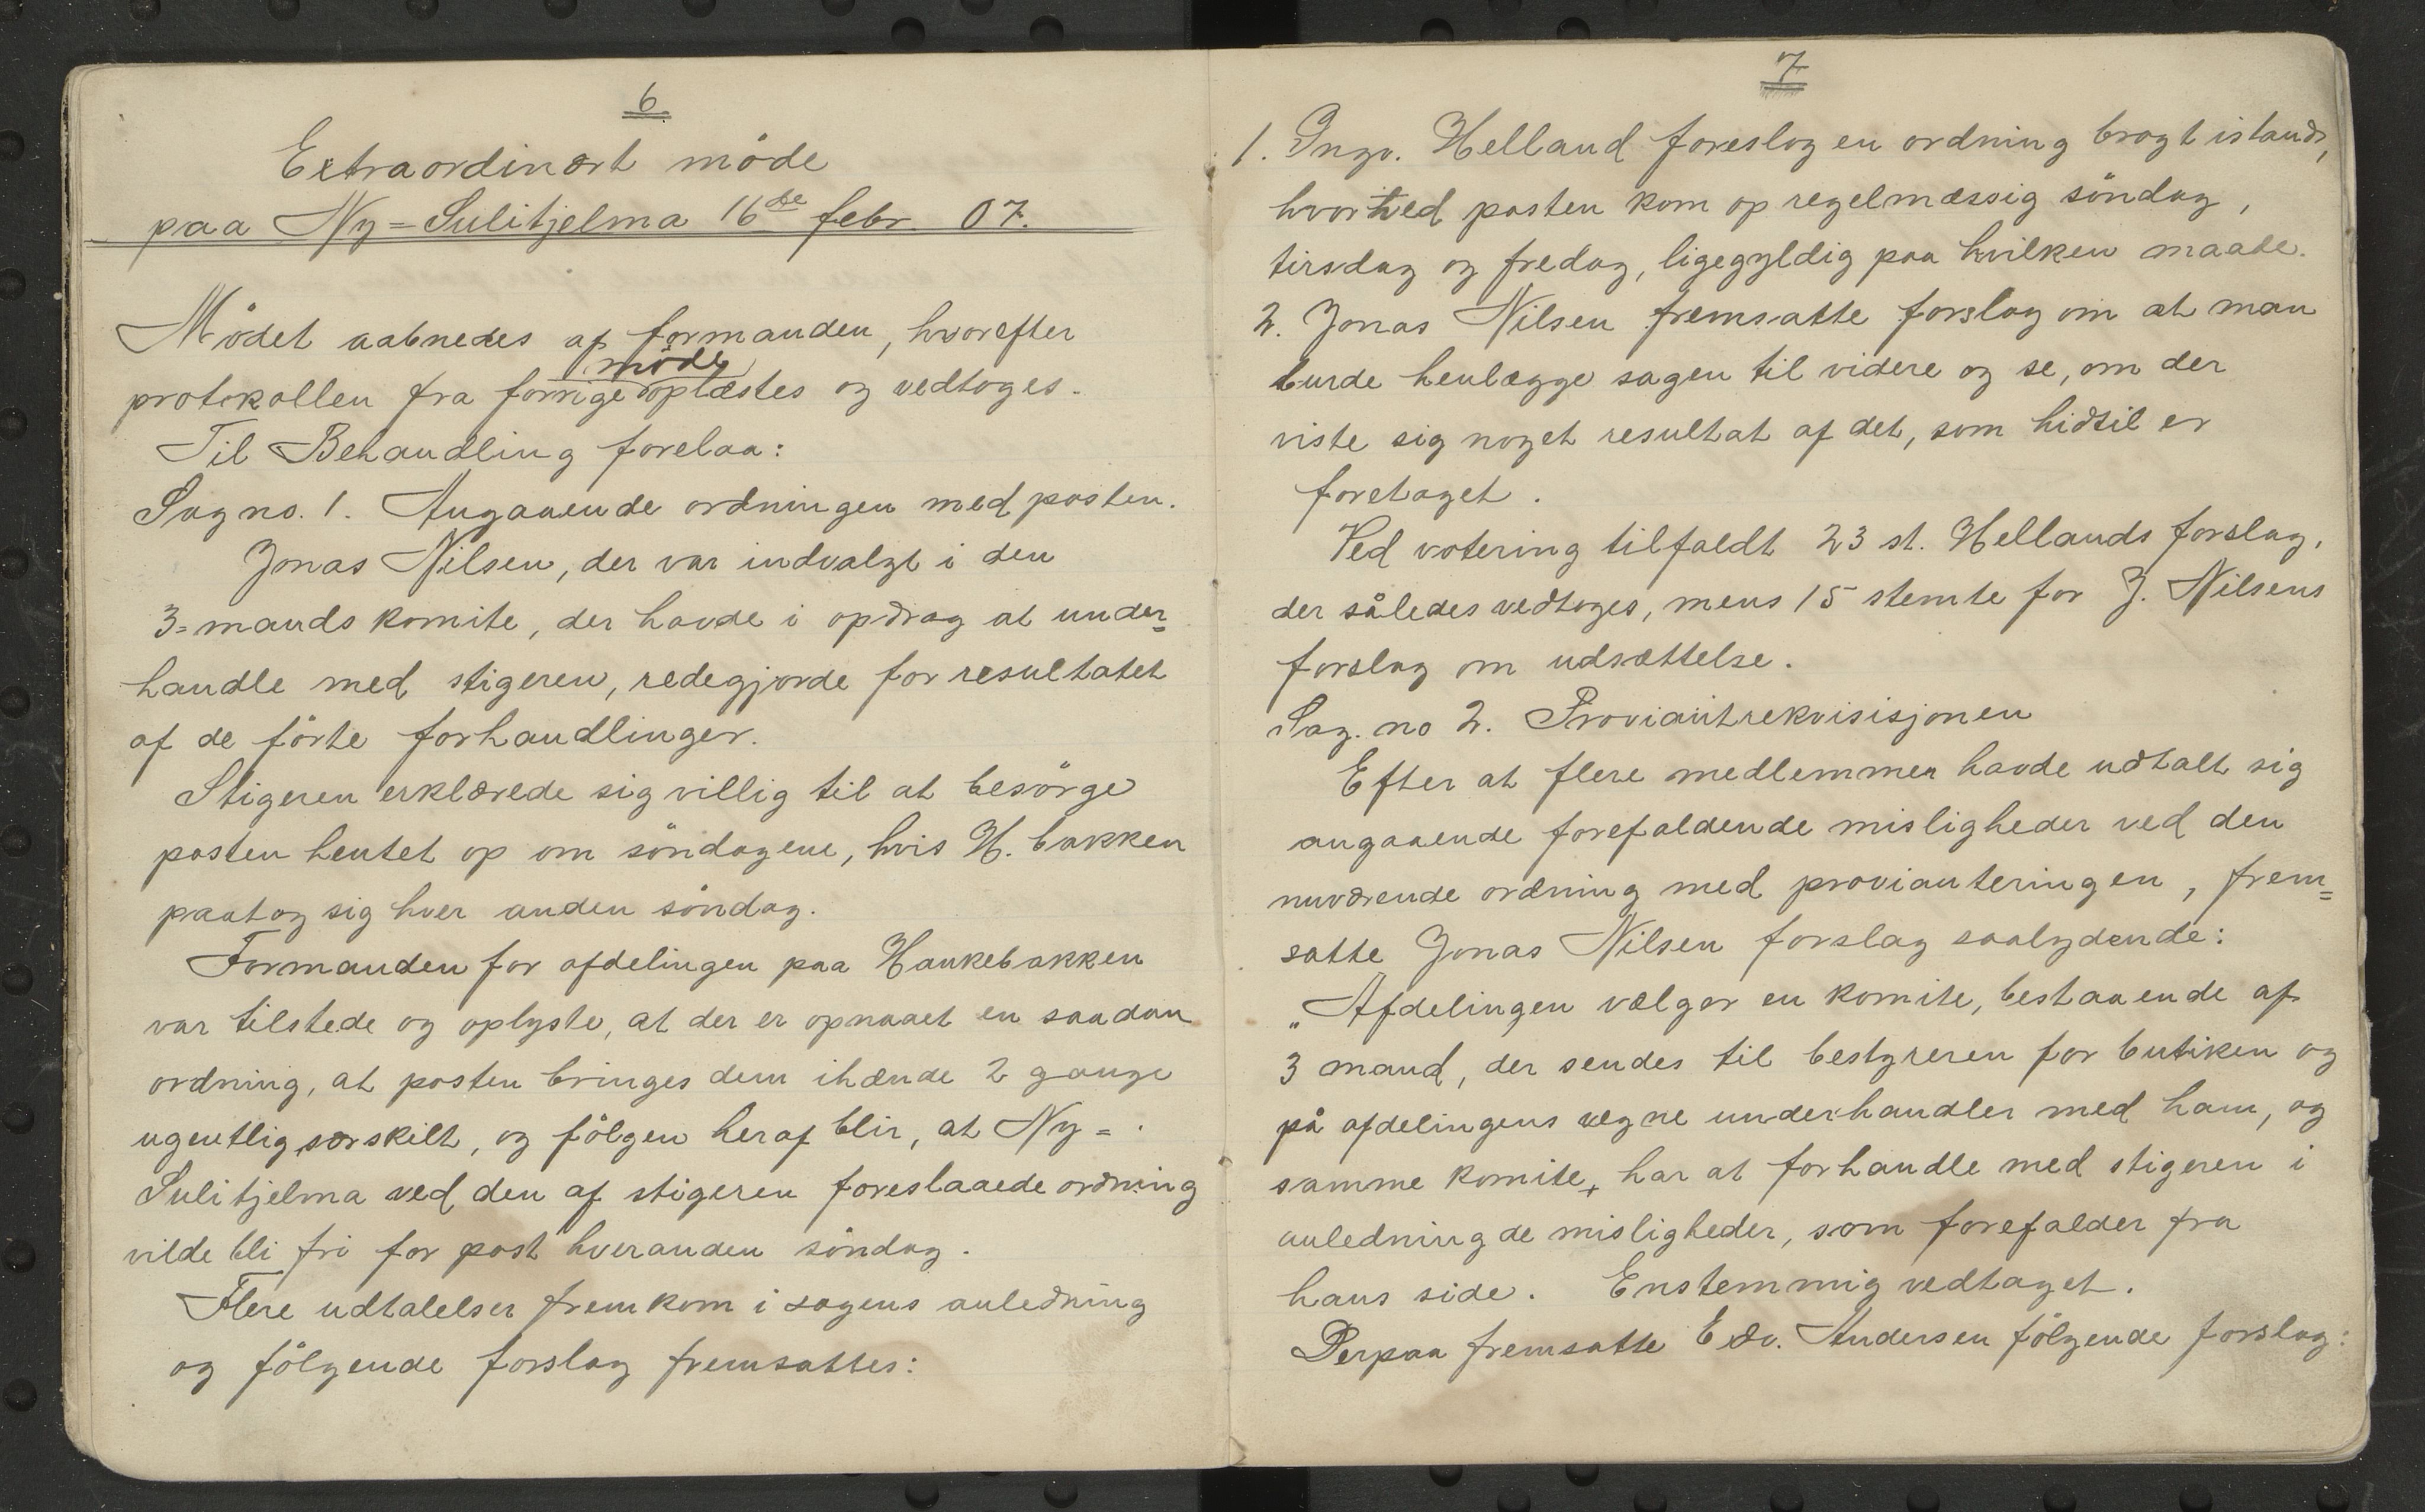 6
Extraordinært möde
paa Ny=Sulitjelma 16de febr. 07.
Mödet aabnedes af formanden, hvorefter
möde
protokollen fra forrige oplæstes og vedtoges.
Til Behandling forelaa:
Sag no. 1. Angaaende ordningen med posten.
Jonas Nilsen, der var indvalgt i den
3=mands komite, der havde i opdrag at under=
handle med stigeren, redegjorde for resultatet
af de förte forhandlinger.
Stigeren erklærede sig villig til at besörge
posten hentet op om söndagene, hvis H. bakken
paatog sig hver anden söndag.
Formanden for afdelingen paa Hankebakken
var tilstede og oplyste, at der er opnaaet en saadan
ordning, at posten bringes dem ihænde 2 gange
ugentlig særskilt, og fölgen heraf blir, at Ny=
Sulitjelma ved den af stigeren foreslaaede ordning
vilde bli fri for post hveranden söndag.
Flere udtalelser fremkom i sagens anledning
og fölgende forslag fremsattes:
7
1. Ingv. Helland foreslog en ordning bragt istand,
hvorved posten kom op regelmæssig söndag,
tirsdag og fredag, ligegyldig paa hvilken maade.
2. Jonas Nilsen fremsatte forslag om at man
burde henlægge sagen til videre og se, om der
viste sig noget resultat af det, som hidtil er
foretaget.
Ved votering tilfaldt 23 st. Hellands forslag,
der således vedtoges, mens 15 stemte for J. Nilsens
forslag om udsættelse.
Sag. no 2. Proviantrekvisisjonen
Efter at flere medlemmer havde udtalt sig
angaaende forefaldende misligheder ved den
nuværende ordning med provianteringen, frem=
satte Jonas Nilsen forslag saalydende:
„Afdelingen vælger en komite, bestaaende af
3 mand, der sendes til bestyreren for butiken og
på afdelingens vegne underhandler med ham, og
samme komite, har at forhandle med stigeren i
anledning de misligheder, som forefalder fra
hans side. Enstemmig vedtaget.
Derpaa fremsatte Edv. Andersen fölgende forslag: